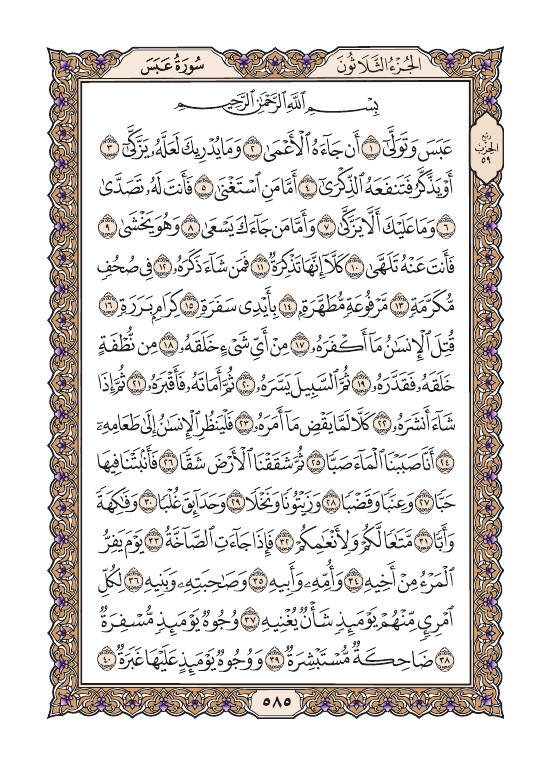 الجُزْءُ الثَّلَاثُونَ
سُورَةُ عَبَسَ
رُبْع
الحِزْب
٥٩
بِسْمِ اللَّهِ الرَّحْمَٰنِ الرَّحِيمِ
عَبَسَ وَتَوَلَّىٰٓ ١ أَن جَآءَهُ ٱلْأَعْمَىٰ ٢ وَمَا يُدْرِيكَ لَعَلَّهُۥ يَزَّكَّىٰٓ ٣
أَوْ يَذَّكَّرُ فَتَنفَعَهُ ٱلذِّكْرَىٰٓ ٤ أَمَّا مَنِ ٱسْتَغْنَىٰ ٥ فَأَنتَ لَهُۥ تَصَدَّىٰ
٦ وَمَا عَلَيْكَ أَلَّا يَزَّكَّىٰ ٧ وَأَمَّا مَن جَآءَكَ يَسْعَىٰ ٨ وَهُوَ يَخْشَىٰ ٩
فَأَنتَ عَنْهُ تَلَهَّىٰ ١٠ كَلَّآ إِنَّهَا تَذْكِرَةٌ ١١ فَمَن شَآءَ ذَكَرَهُۥ ١٢ فِى صُحُفٍ
مُّكَرَّمَةٍ ١٣ مَّرْفُوعَةٍ مُّطَهَّرَةٍۭ ١٤ بِأَيْدِى سَفَرَةٍ ١٥ كِرَامٍۭ بَرَرَةٍ ١٦
قُتِلَ ٱلْإِنسَٰنُ مَآ أَكْفَرَهُۥ ١٧ مِنْ أَىِّ شَىْءٍ خَلَقَهُۥ ١٨ مِن نُّطْفَةٍ
خَلَقَهُۥ فَقَدَّرَهُۥ ١٩ ثُمَّ ٱلسَّبِيلَ يَسَّرَهُۥ ٢٠ ثُمَّ أَمَاتَهُۥ فَأَقْبَرَهُۥ ٢١ ثُمَّ إِذَا
شَآءَ أَنشَرَهُۥ ٢٢ كَلَّا لَمَّا يَقْضِ مَآ أَمَرَهُۥ ٢٣ فَلْيَنظُرِ ٱلْإِنسَٰنُ إِلَىٰ طَعَامِهِۦٓ
٢٤ أَنَّا صَبَبْنَا ٱلْمَآءَ صَبًّا ٢٥ ثُمَّ شَقَقْنَا ٱلْأَرْضَ شَقًّا ٢٦ فَأَنۢبَتْنَا فِيهَا
حَبًّا ٢٧ وَعِنَبًا وَقَضْبًا ٢٨ وَزَيْتُونًا وَنَخْلًا ٢٩ وَحَدَآئِقَ غُلْبًا ٣٠ وَفَٰكِهَةً
وَأَبًّا ٣١ مَّتَٰعًا لَّكُمْ وَلِأَنْعَٰمِكُمْ ٣٢ فَإِذَا جَآءَتِ ٱلصَّآخَّةُ ٣٣ يَوْمَ يَفِرُّ
ٱلْمَرْءُ مِنْ أَخِيهِ ٣٤ وَأُمِّهِۦ وَأَبِيهِ ٣٥ وَصَٰحِبَتِهِۦ وَبَنِيهِ ٣٦ لِكُلِّ
ٱمْرِئٍ مِّنْهُمْ يَوْمَئِذٍ شَأْنٌ يُغْنِيهِ ٣٧ وُجُوهٌ يَوْمَئِذٍ مُّسْفِرَةٌ
٣٨ ضَاحِكَةٌ مُّسْتَبْشِرَةٌ ٣٩ وَوُجُوهٌ يَوْمَئِذٍ عَلَيْهَا غَبَرَةٌ ٤٠
٥٨٥